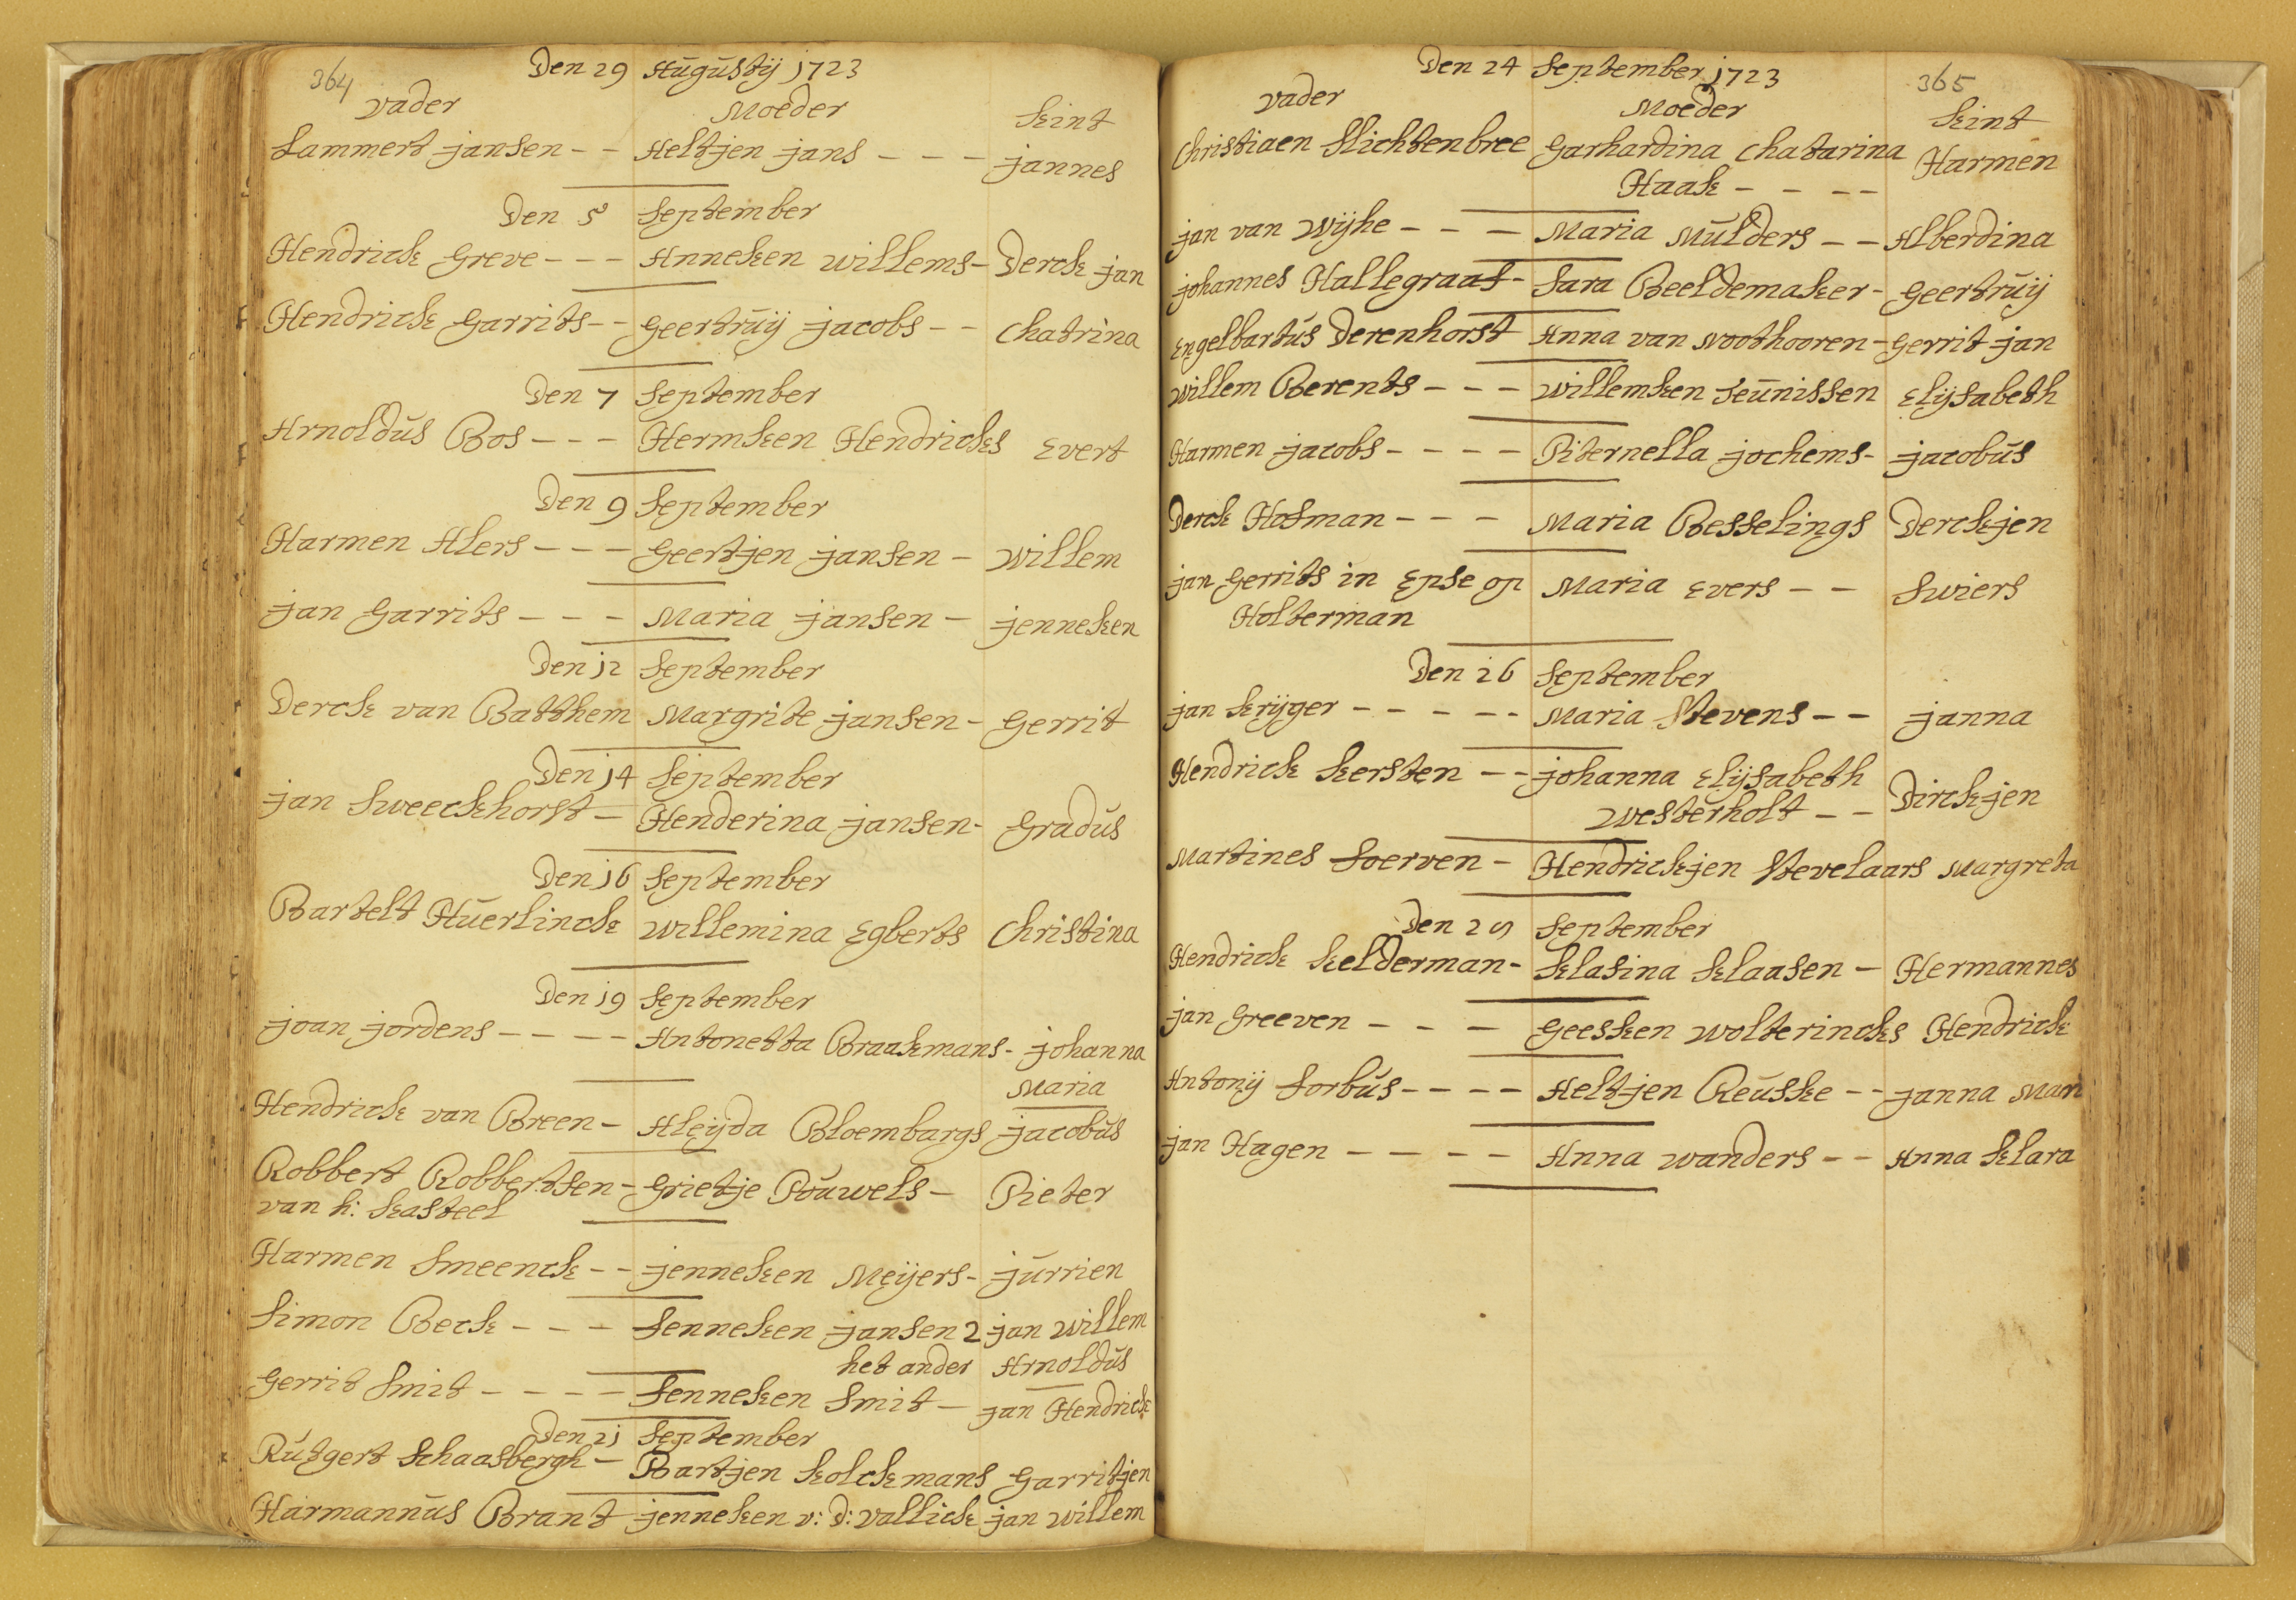 364
Den 29 Augustij 1723
vader Moeder Kint
Lammert jansen - - Aeltjen jans - - - jannes
Den 5 September
Hendrick Greve - - - Anneken willems - Derck jan
Hendrick Garrits - - Geertruij jacobs - - Chatrina
Den 7 September
Arnoldus Bos - - - Hermken Hendricks Evert
Den 9 September
Harmen Alers - - - Geertjen jansen - willem
jan Garrits - - - Maria jansen - jenneken
Den 12 September
Derck van Batthem Margrite jansen - Gerrit
Den 14 September
jan Sweeckhorst - Henderina jansen - Gradus
Den 16 September
Bartelt Huerlinck willemina Egberts Christina
Den 19 September
joan jordens - - - - Antonetta Braakmans - johanna
Maria
Hendrick van Breen - Aleijda Bloembargs jacobus
Robbert Robbertsen - Grietje Pouwels - Pieter
van h: Kasteel
Harmen Smeenck - - jenneken Meijers - jurrien
Simon Beck - - - Fenneken jansen 2 jan willem
het ander Arnoldus
Gerrit Smit - - - - Fenneken Smit - jan Hendrick
Den 21 September
Rutgert Schaasbergh - Bartjen Kolckmans Garritjen
Harmannus Brant jenneken v: d: vallick jan willem
365
Den 24 September 1723
vader Moeder Kint
Christiaen Slichtenbree Garhardina Chatarina Harmen
Haak - - - -
jan van Wijhe - - - Maria Mulders - - Alberdina
johannes Hallegraaf - Sara Beeldemaker - Geertruij
Engelbartus Derenhorst Anna van Noothooren - Gerrit jan
willem Berents - - - willemken Teunissen Elijsabeth
Harmen jacobs - - - - Piternella jochems - jacobus
Derck Hofman - - - Maria Besselings Derckjen
jan Gerrits in Epse op Maria Evers - - Swiers
Holterman
Den 26 September
jan Krijger - - - - - Maria Stevens - - janna
Hendrick Kersten - - johanna Elijsabeth Dirckjen
westerholt - -
Martines Foerven - Hendrickjen Stevelaars Margreta
Den 29 September
Hendrick Kelderman - Klasina Klaasen - Hermannes
jan Greeven - - - Geesken wolterincks Hendrick
Antonij Forbus - - - - Aeltjen Reuske - - janna Mari
jan Hagen - - - - Anna wanders - - Anna Klara